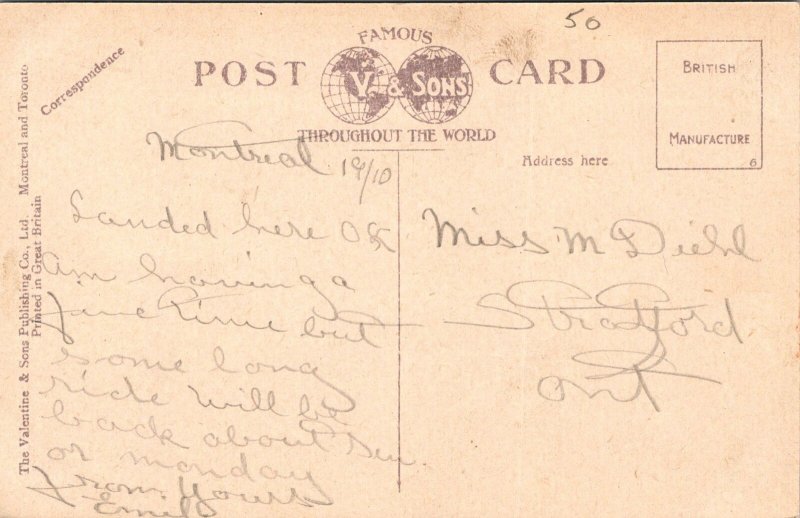 50
FAMOUS
POST V. & SONS CARD
THROUGHOUT THE WORLD
BRITISH
MANUFACTURE
6
Correspondence
Address here
The Valentine & Sons Publishing Co., Ltd. Montreal and Toronto
Printed in Great Britain
Montreal 19/10
Landed here OK
am having a
fine time but
some long
ride will be
back about Sun
or monday
from Yours
Emil
Miss M Diehl
Stratford
Ont